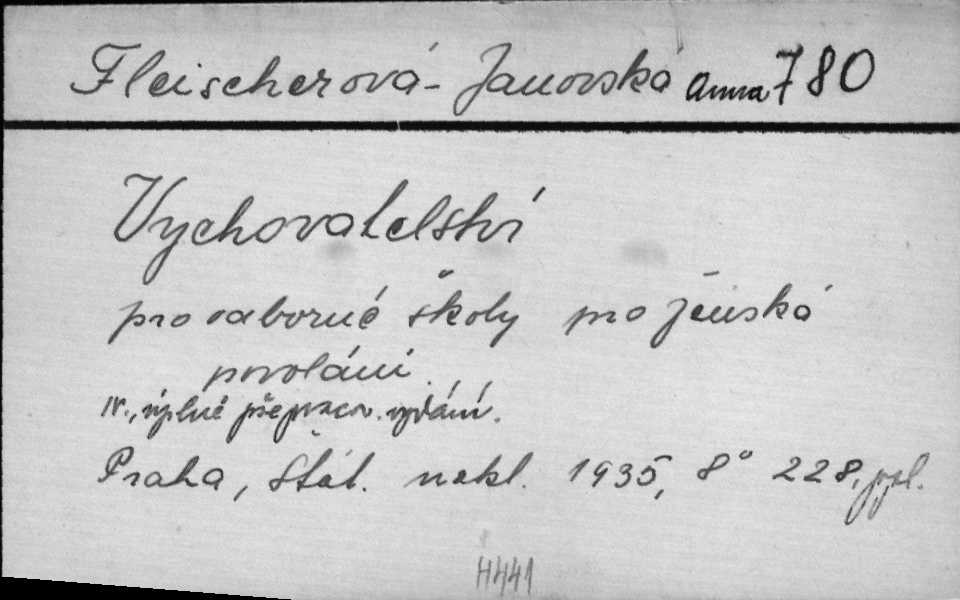 Fleischerová-Janovská Anna 780
Vychovatelství
pro odborné školy pro ženská
povolání.
IV., úplně přepracov. vydání.
Praha, Stát. nakl. 1935, 8° 228,
H441